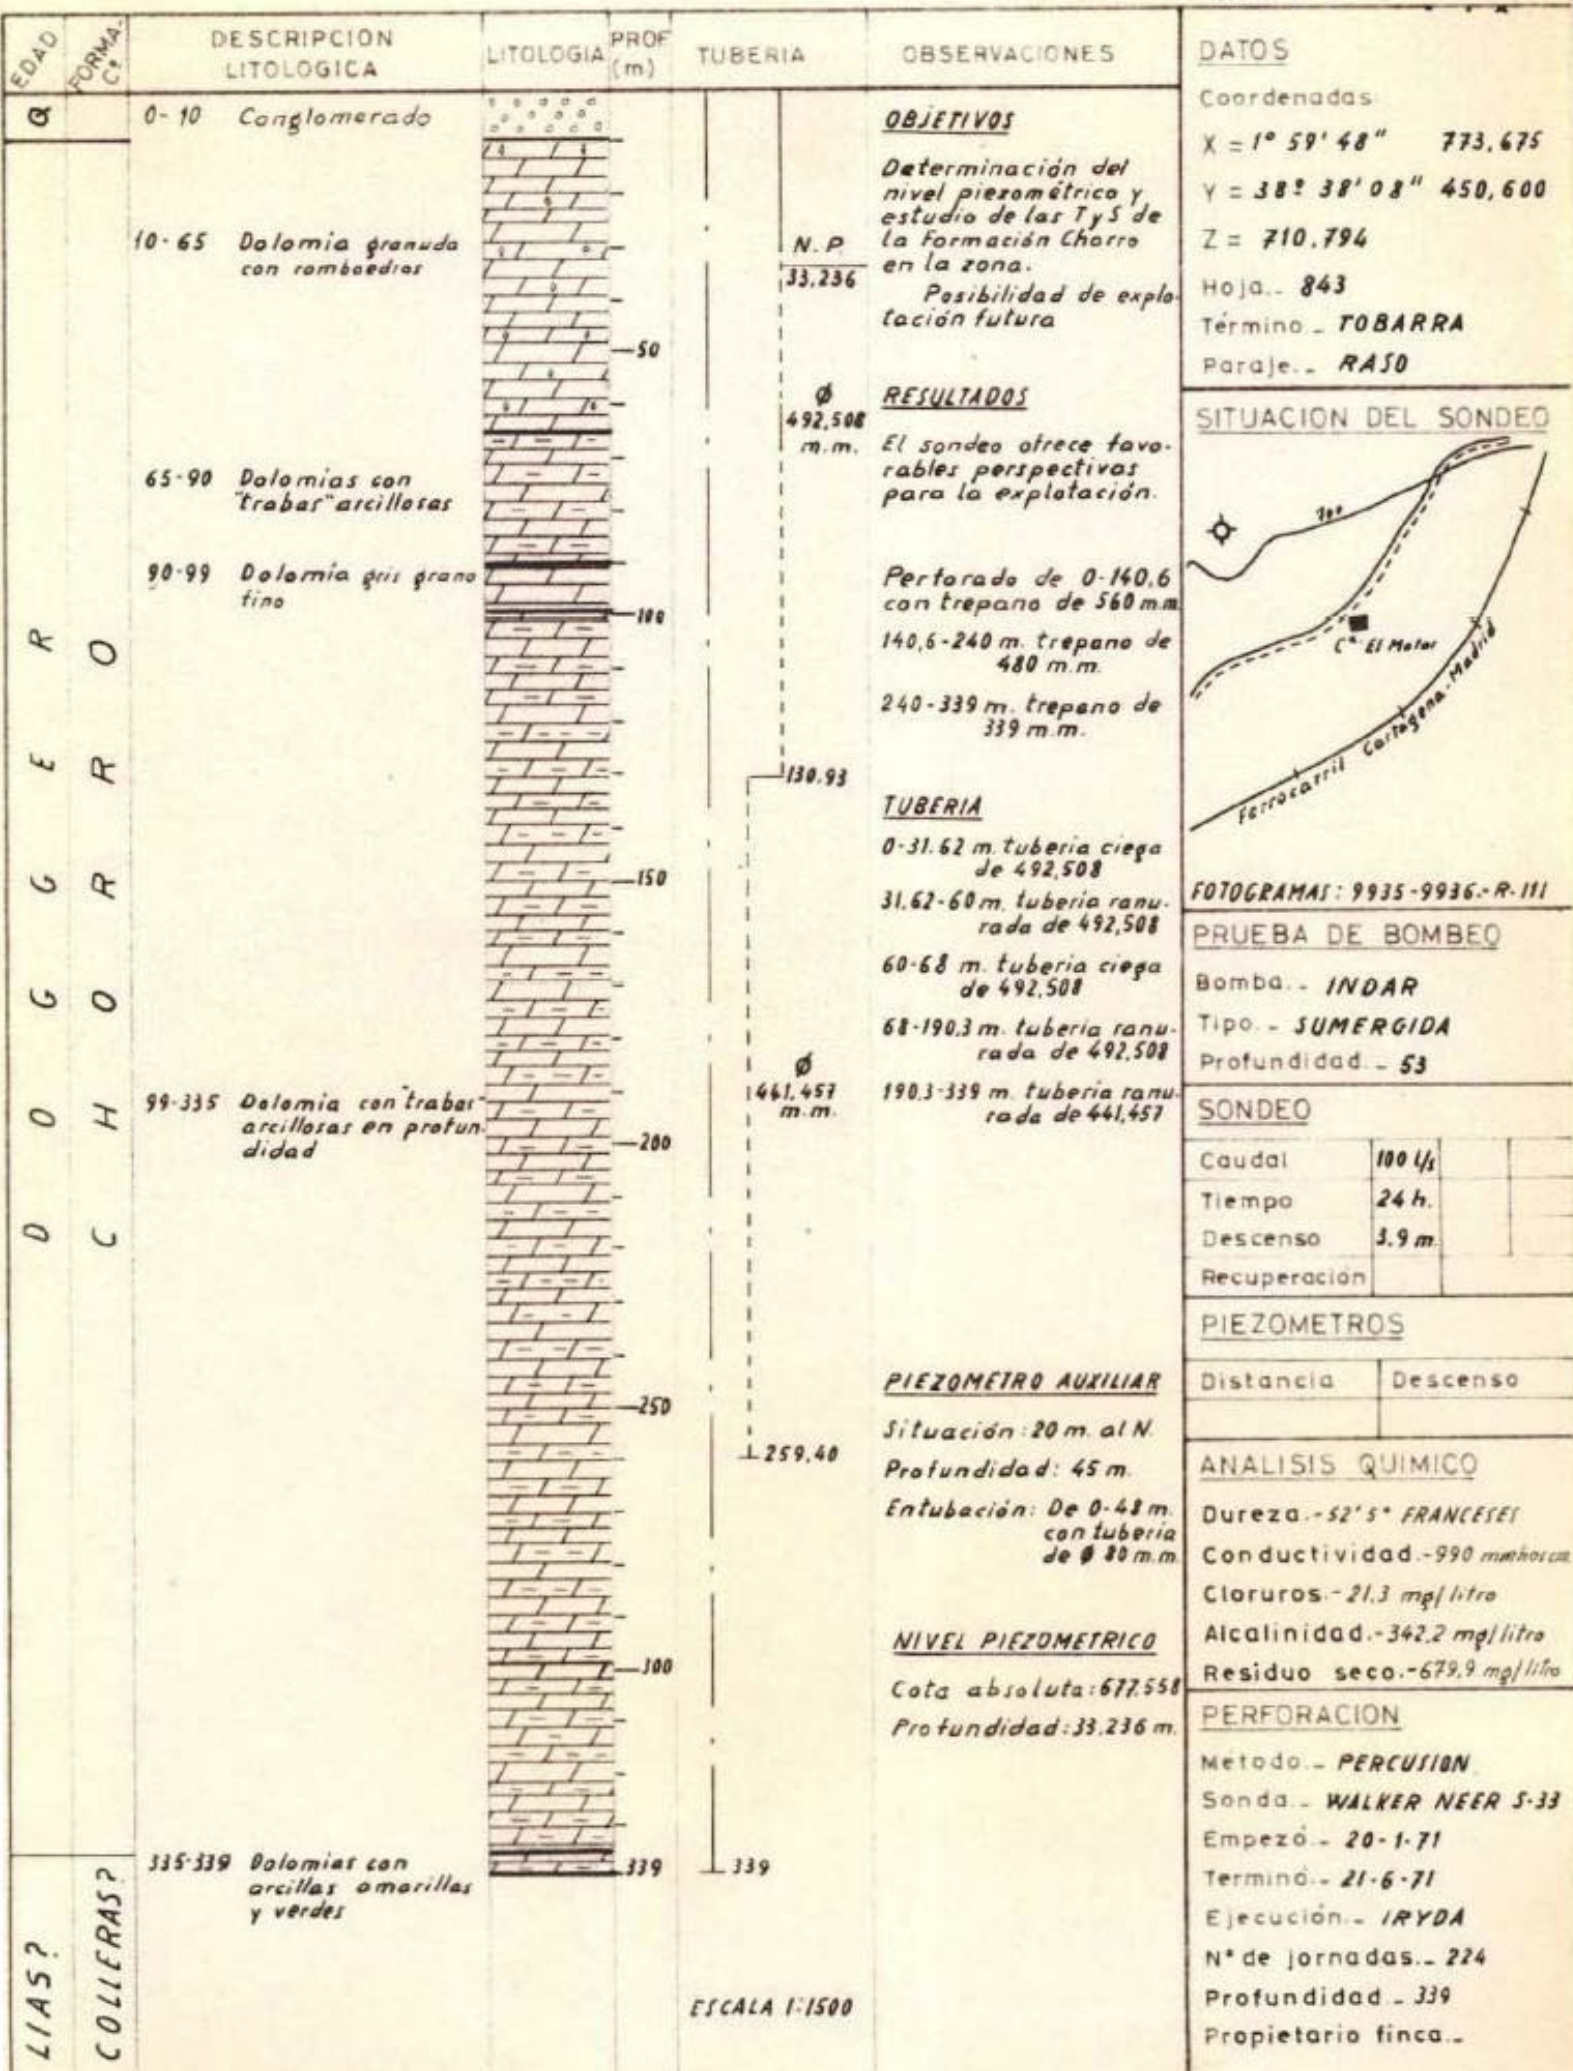 EDAD
FORMA-
Cª
DESCRIPCION
LITOLOGICA
LITOLOGIA
PROF
(m)
TUBERIA
OBSERVACIONES
Q
0-10 Conglomerado
10-65 Dolomia granuda
con romboedros
65-90 Dolomias con
"trabas" arcillosas
90-99 Dolomia gris grano
fino
99-335 Dolomia con "trabas"
arcillosas en profun-
didad
335-339 Dolomias con
arcillas amarillas
y verdes
DOGGER
CHORRO
LIAS?
COLLERAS?
50
100
150
200
250
300
339
N.P.
33,236
Ø
492,508
m.m.
130.93
Ø
441,457
m.m.
259,40
339
ESCALA 1:1500
OBJETIVOS
Determinación del
nivel piezométrico y
estudio de las T y S de
la Formación Chorro
en la zona.
Posibilidad de explo-
tación futura
RESULTADOS
El sondeo ofrece favo-
rables perspectivas
para la explotación.
Perforado de 0-140,6
con trepano de 560 m.m.
140,6-240 m. trepano de
480 m.m.
240-339 m. trepano de
339 m.m.
TUBERIA
0-31.62 m. tuberia ciega
de 492,508
31,62-60 m. tuberia ranu-
rada de 492,508
60-68 m. tuberia ciega
de 492,508
68-190,3 m. tuberia ranu-
rada de 492,508
190,3-339 m. tuberia ranu-
rada de 441,457
PIEZOMETRO AUXILIAR
Situación: 20 m. al N.
Profundidad: 45 m.
Entubación: De 0-48 m.
con tuberia
de Ø 80 m.m.
NIVEL PIEZOMETRICO
Cota absoluta: 677.558
Profundidad: 33.236 m.
DATOS
Coordenadas
X = 1º 59' 48" 773,675
Y = 38º 38' 08" 450,600
Z = 710.794
Hoja.- 843
Término - TOBARRA
Paraje.- RASO
SITUACION DEL SONDEO
700
Cª El Motor
Ferrocarril Cartagena-Madrid
FOTOGRAMAS: 9935-9936.-R-111
PRUEBA DE BOMBEO
Bomba.- INDAR
Tipo.- SUMERGIDA
Profundidad.- 53
SONDEO
Caudal 100 l/s
Tiempo 24 h.
Descenso 3.9 m.
Recuperación
PIEZOMETROS
Distancia Descenso
ANALISIS QUIMICO
Dureza.-52'5° FRANCESES
Conductividad.-990
Cloruros.-21.3 mg/litro
Alcalinidad.-342,2 mg/litro
Residuo seco.-679,9 mg/litro
PERFORACION
Metodo.- PERCUSION
Sonda.- WALKER NEER S-33
Empezó.- 20-1-71
Terminó.- 21-6-71
Ejecución.- IRYDA
Nº de jornadas.- 224
Profundidad.- 339
Propietario finca.-